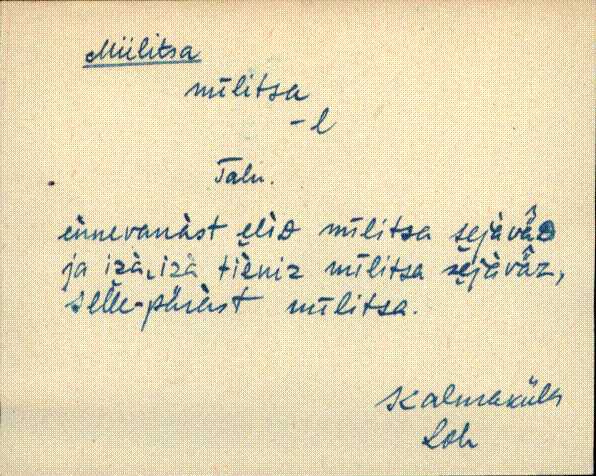 Miilitsa
mīlitsa
-l
Talu.
ennevanàst elìD mīlitsa sejàväD
ja izà, izà tìeniz mīlitsa sejàväz,
selle-pärà̀st mīlitsa.
Kalmaküla
Loh